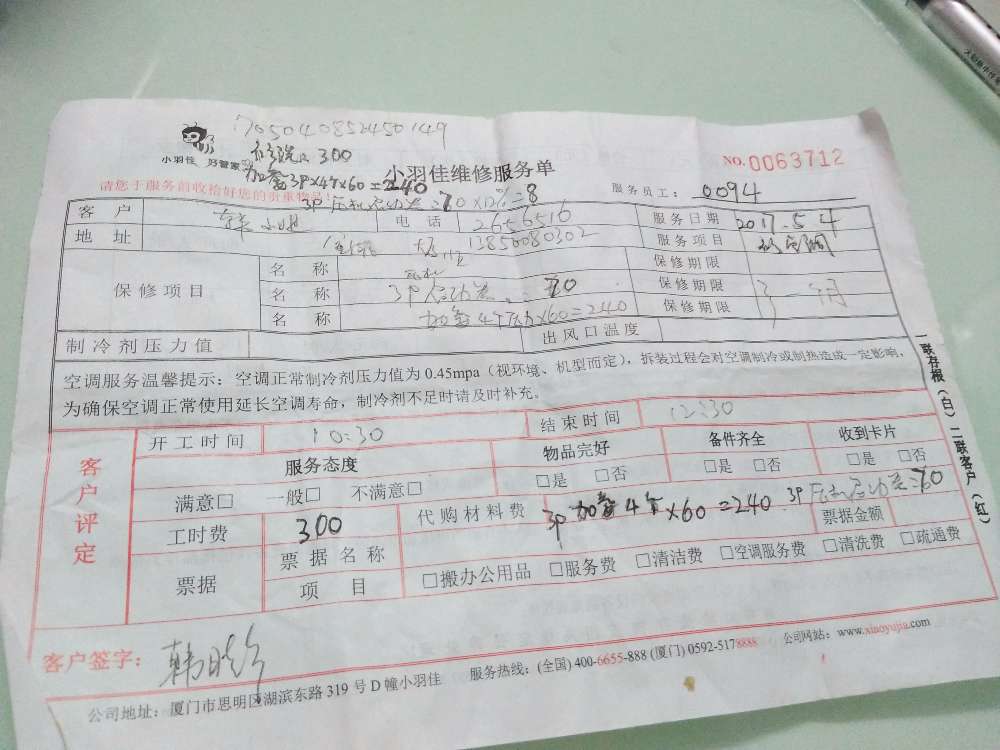 705040852450149
300
小羽佳 好管家
加氟3P×4个×60=240
小羽佳维修服务单
NO.0063712
请您于服务前收拾好您的贵重物品
服务员工： 0094
客户 小姐 电话 2656516 服务日期 2017.5.4
地址 13850080302 服务项目
保修项目 名称 保修期限
名称 3P 70 保修期限 一个月
名称 加氟4个×60=240 保修期限
制冷剂压力值 出风口温度
空调服务温馨提示：空调正常制冷剂压力值为 0.45mpa（视环境、机型而定），拆装过程会对空调制冷或制热造成一定影响，
为确保空调正常使用延长空调寿命，制冷剂不足时请及时补充。
一联存根（白）二联客户（红）
客户评定
开工时间 10:30 结束时间 12:30
服务态度 物品完好 备件齐全 收到卡片
满意□ 一般□ 不满意□ □是 □否 □是 □否 □是 □否
工时费 300 代购材料费 3P加氟4个×60=240 3P 70 票据金额
票据 票据名称
项目 □搬办公用品 □服务费 □清洁费 □空调服务费 □清洗费 □疏通费
客户签字：
公司地址：厦门市思明区湖滨东路 319 号 D 幢小羽佳 服务热线：(全国) 400-6655-888 (厦门) 0592-5178888 公司网站：www.xiaoyujia.com